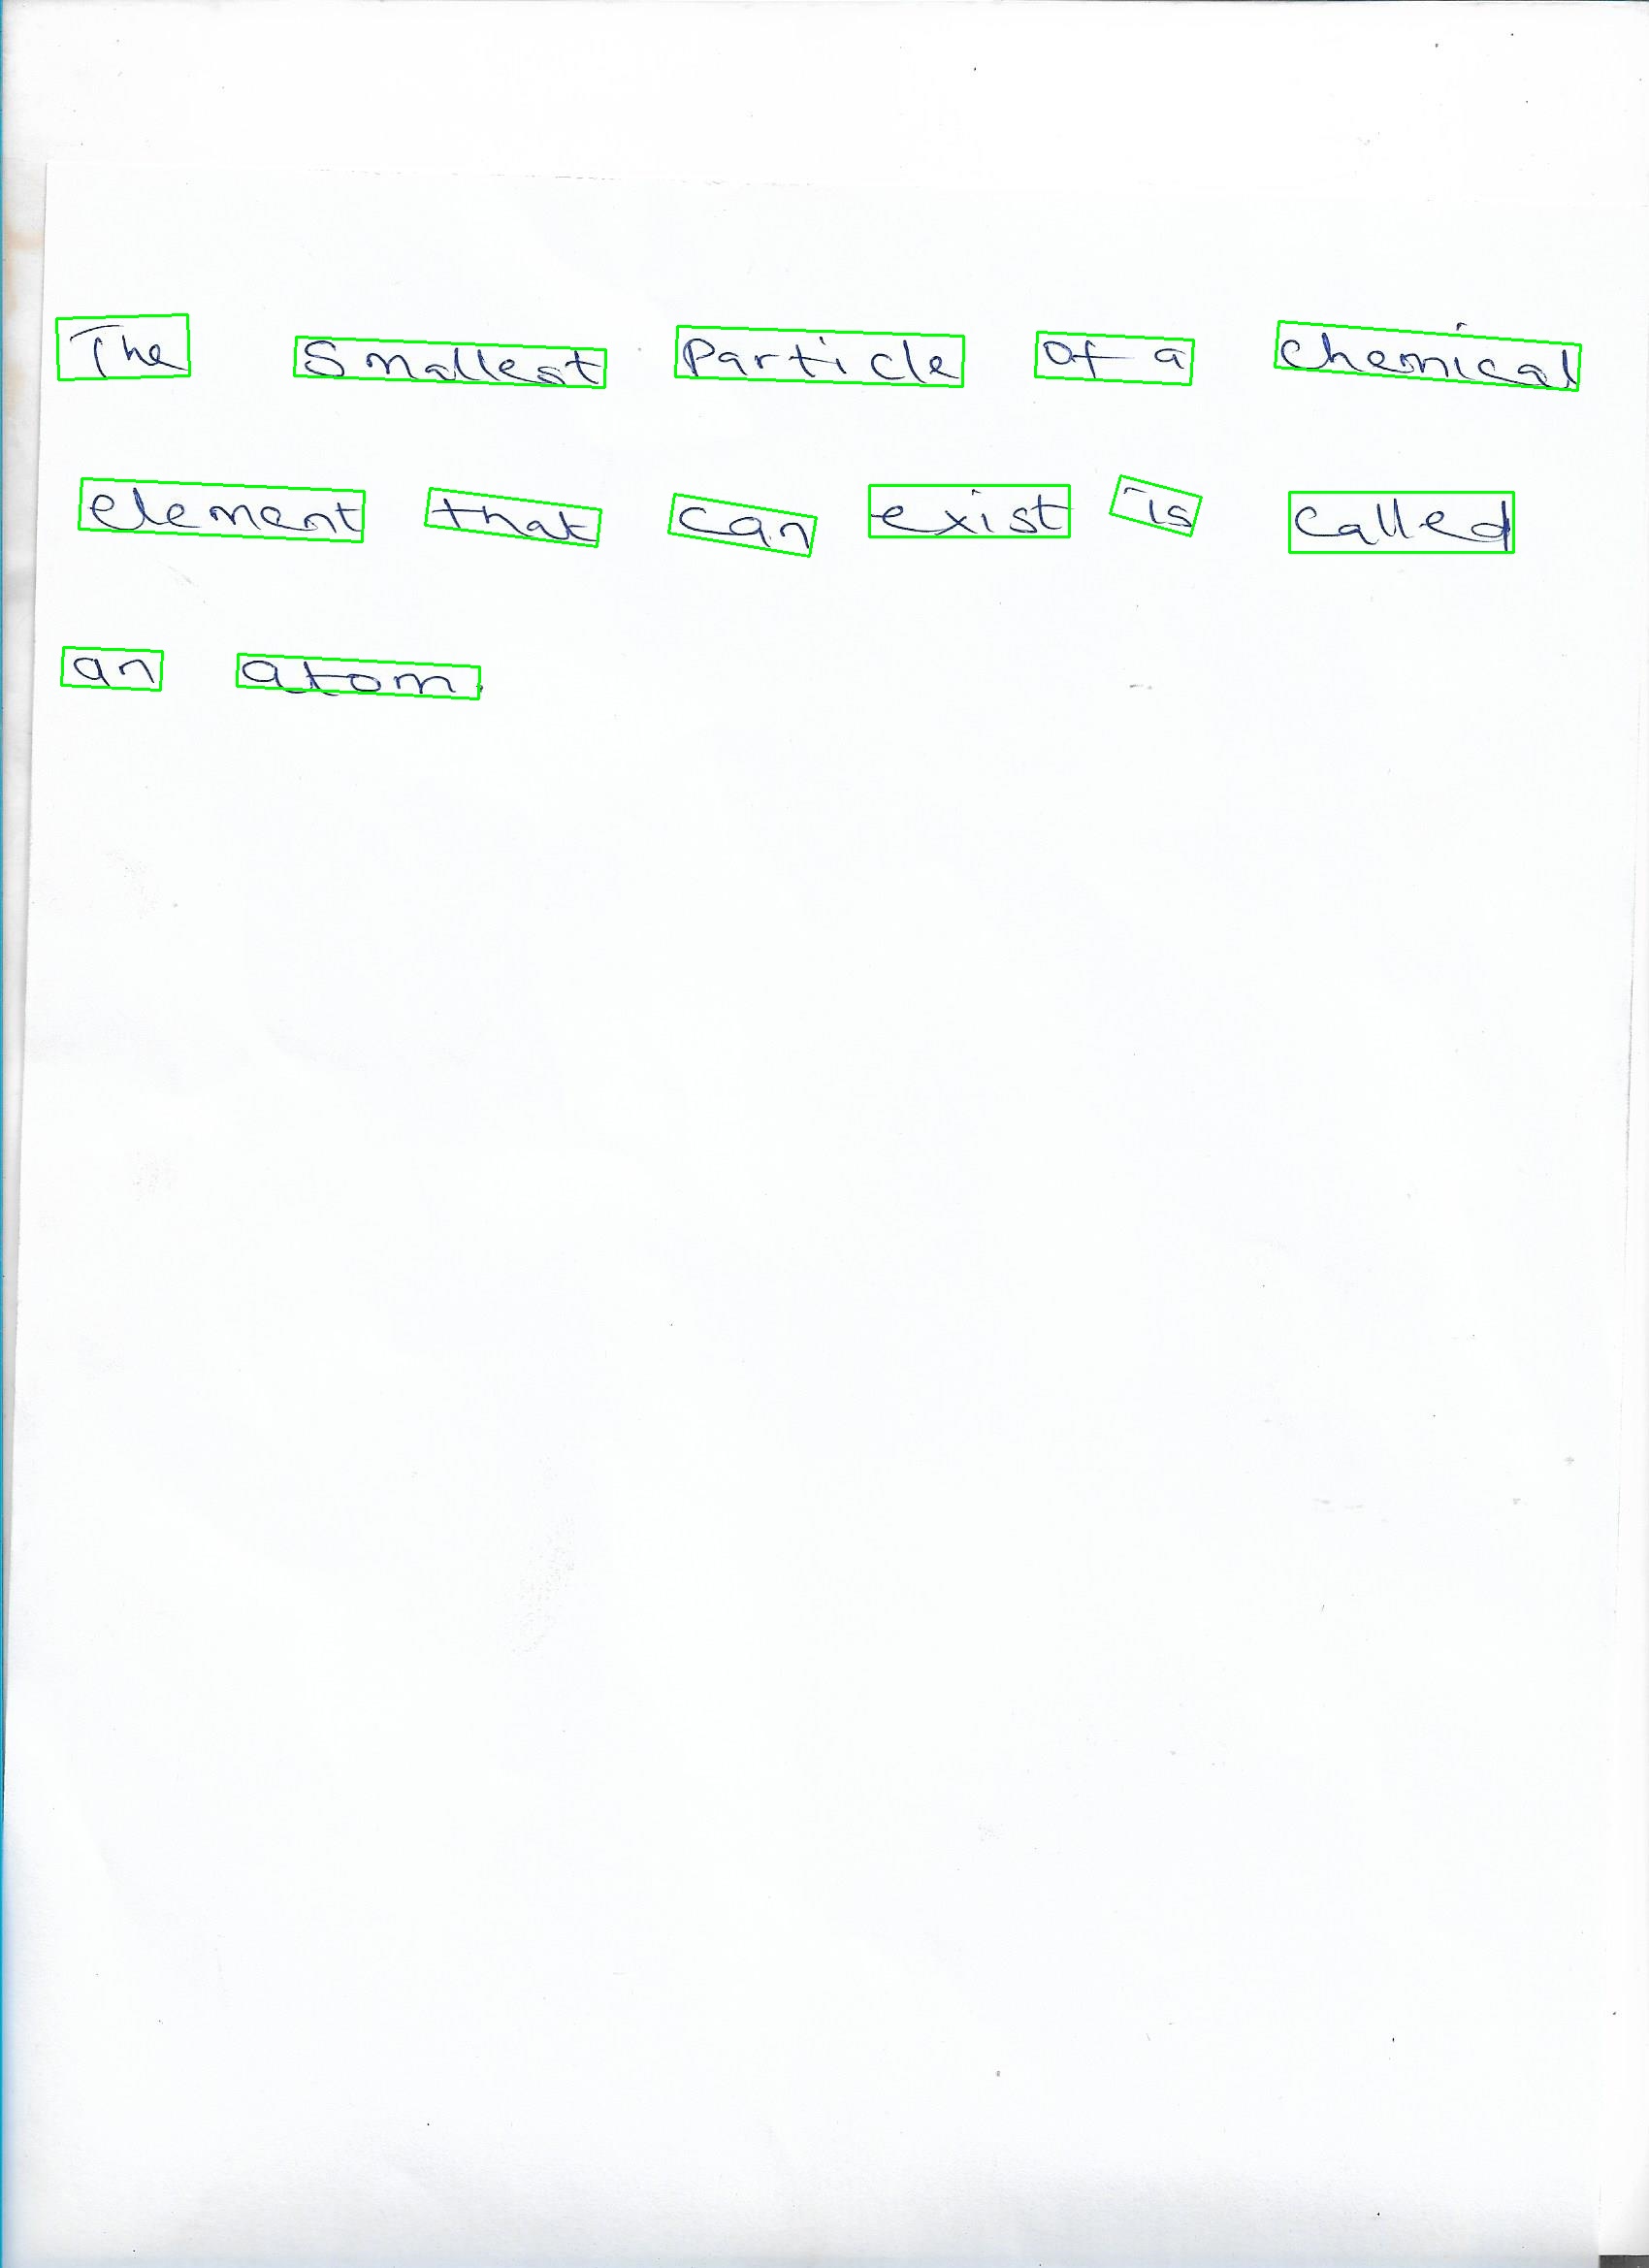 The Smallest Particle of a chemical
element that can exist is called
an atom.